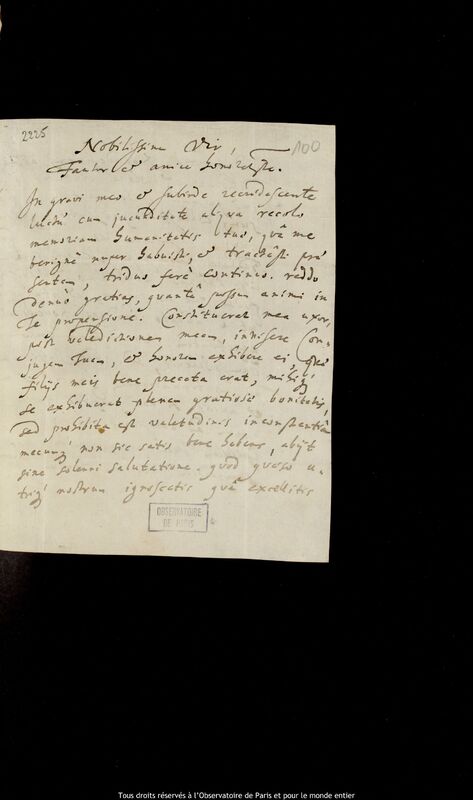 2225
100
Nobilissime Vir,
Fautor et amice honorāte.
In gravi meo & subinde recrudescente
luctu cum jucunditate aliqva recolo
memoriam humanitatis tuæ, qvâ me
benignè nuper habuisti, & tractâsti præ
sentem, triduo ferè continuo. reddo
denuò gratias, quantâ possum animi in
Te propensione. Constituerat mea uxor,
post valedictionem meam, invisere Con-
jugem tuam, & honorem exhibere ei, quæ
filijs meis bene precata erat, mihiq́
se exhibuerat plenam gratiosæ bonitatis,
sed prohibita est valetudinis inconstantiâ
mecumq́ non sic satis bene habens, abijt
sine solenni salutatione. quod quæso u-
triq́ nostrum ignoscatis quâ excellitis
OBSERVATOIRE
DE PARIS
Tous droits réservés à l'Observatoire de Paris et pour le monde entier